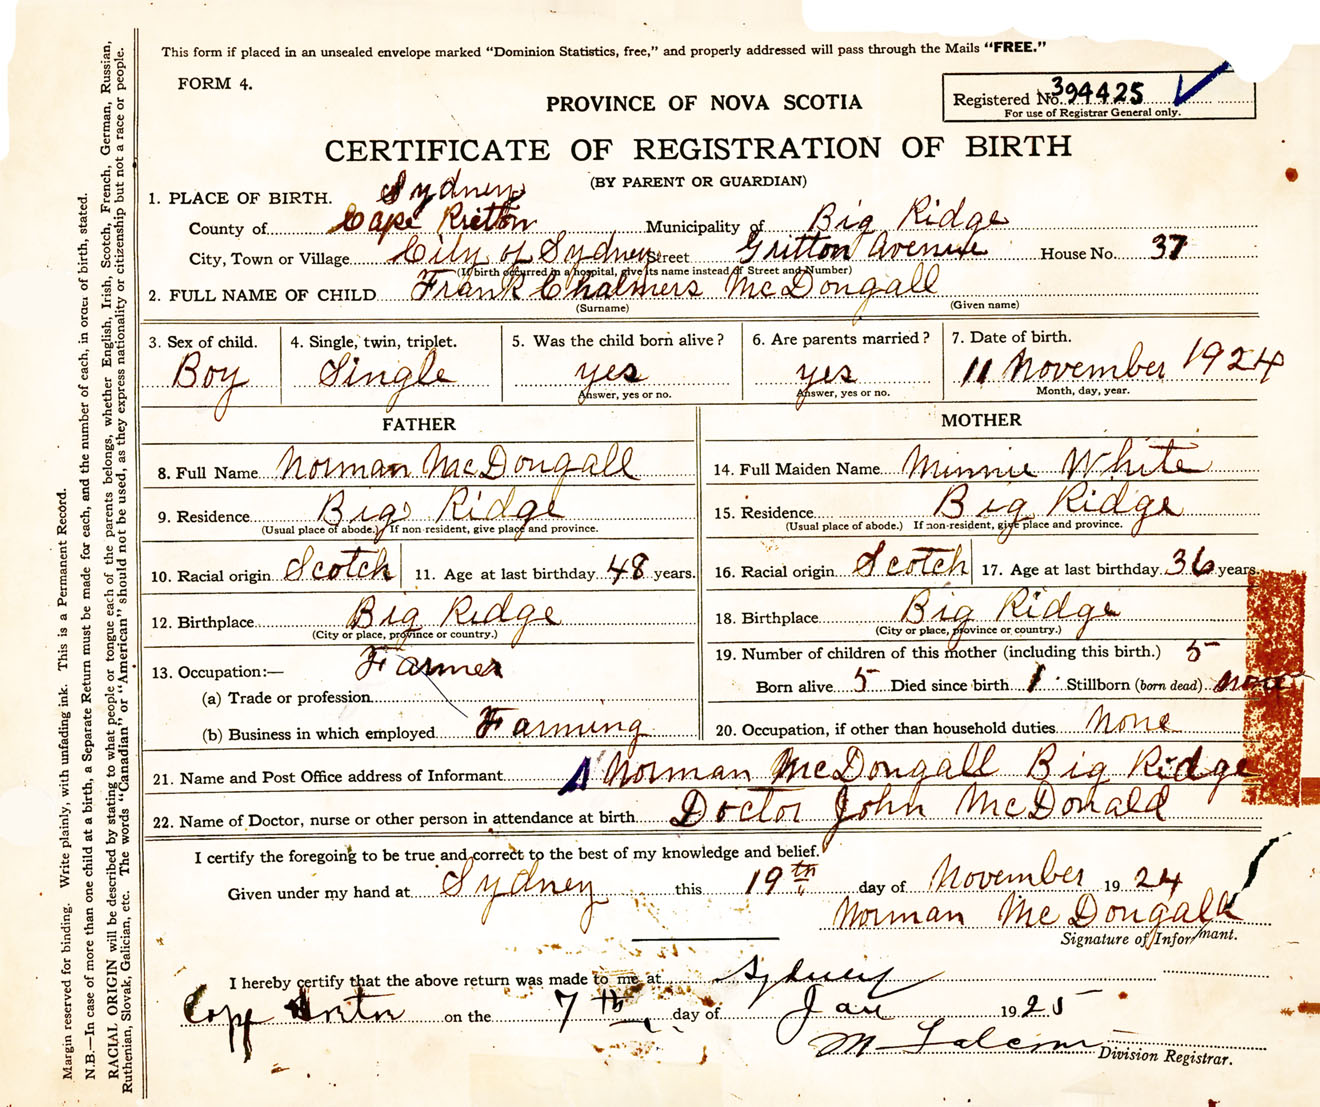 This form if placed in an unsealed envelope marked "Dominion Statistics, free," and properly addressed will pass through the Mails "FREE."
FORM 4.
Registered No. 394425
For use of Registrar General only.
PROVINCE OF NOVA SCOTIA
CERTIFICATE OF REGISTRATION OF BIRTH
(BY PARENT OR GUARDIAN)
1. PLACE OF BIRTH. Sydney
County of Cape Bretton Municipality of Big Ridge
City, Town or Village City of Sydney Street Gritton Avenue House No. 37
(If birth occurred in a hospital, give its name instead of Street and Number)
2. FULL NAME OF CHILD Frank Chalmers McDougall
(Surname) (Given name)
3. Sex of child. 4. Single, twin, triplet. 5. Was the child born alive? 6. Are parents married? 7. Date of birth.
Boy Single yes yes 11 November 1924
Answer, yes or no. Answer, yes or no. Month, day, year.
FATHER MOTHER
8. Full Name Norman MacDougall 14. Full Maiden Name Minnie White
9. Residence Big Ridge 15. Residence Big Ridge
(Usual place of abode.) If non-resident, give place and province. (Usual place of abode.) If non-resident, give place and province.
10. Racial origin Scotch 11. Age at last birthday 48 years. 16. Racial origin Scotch 17. Age at last birthday 36 years.
12. Birthplace Big Ridge 18. Birthplace Big Ridge
(City or place, province or country.) (City or place, province or country.)
13. Occupation:— Farmer 19. Number of children of this mother (including this birth.) 5
(a) Trade or profession Born alive 5 Died since birth 1 Stillborn (born dead) none
(b) Business in which employed Farming 20. Occupation, if other than household duties None
21. Name and Post Office address of Informant Norman McDougall Big Ridge
22. Name of Doctor, nurse or other person in attendance at birth Doctor John McDonald
I certify the foregoing to be true and correct to the best of my knowledge and belief.
Given under my hand at Sydney this 19th day of November 1924
Norman McDougald
Signature of Informant.
I hereby certify that the above return was made to me at Sydney
Cape on the 7th day of Jan 1925
M
Division Registrar.
Margin reserved for binding. Write plainly, with unfading ink. This is a Permanent Record.
N.B.—In case of more than one child at a birth, a Separate Return must be made for each, and the number of each, in order of birth, stated.
RACIAL ORIGIN will be described by stating to what people or tongue each of the parents belongs, whether English, Irish, Scotch, French, German, Russian,
Ruthenian, Slovak, Galician, etc. The words "Canadian" or "American" should not be used, as they express nationality or citizenship but not a race or people.